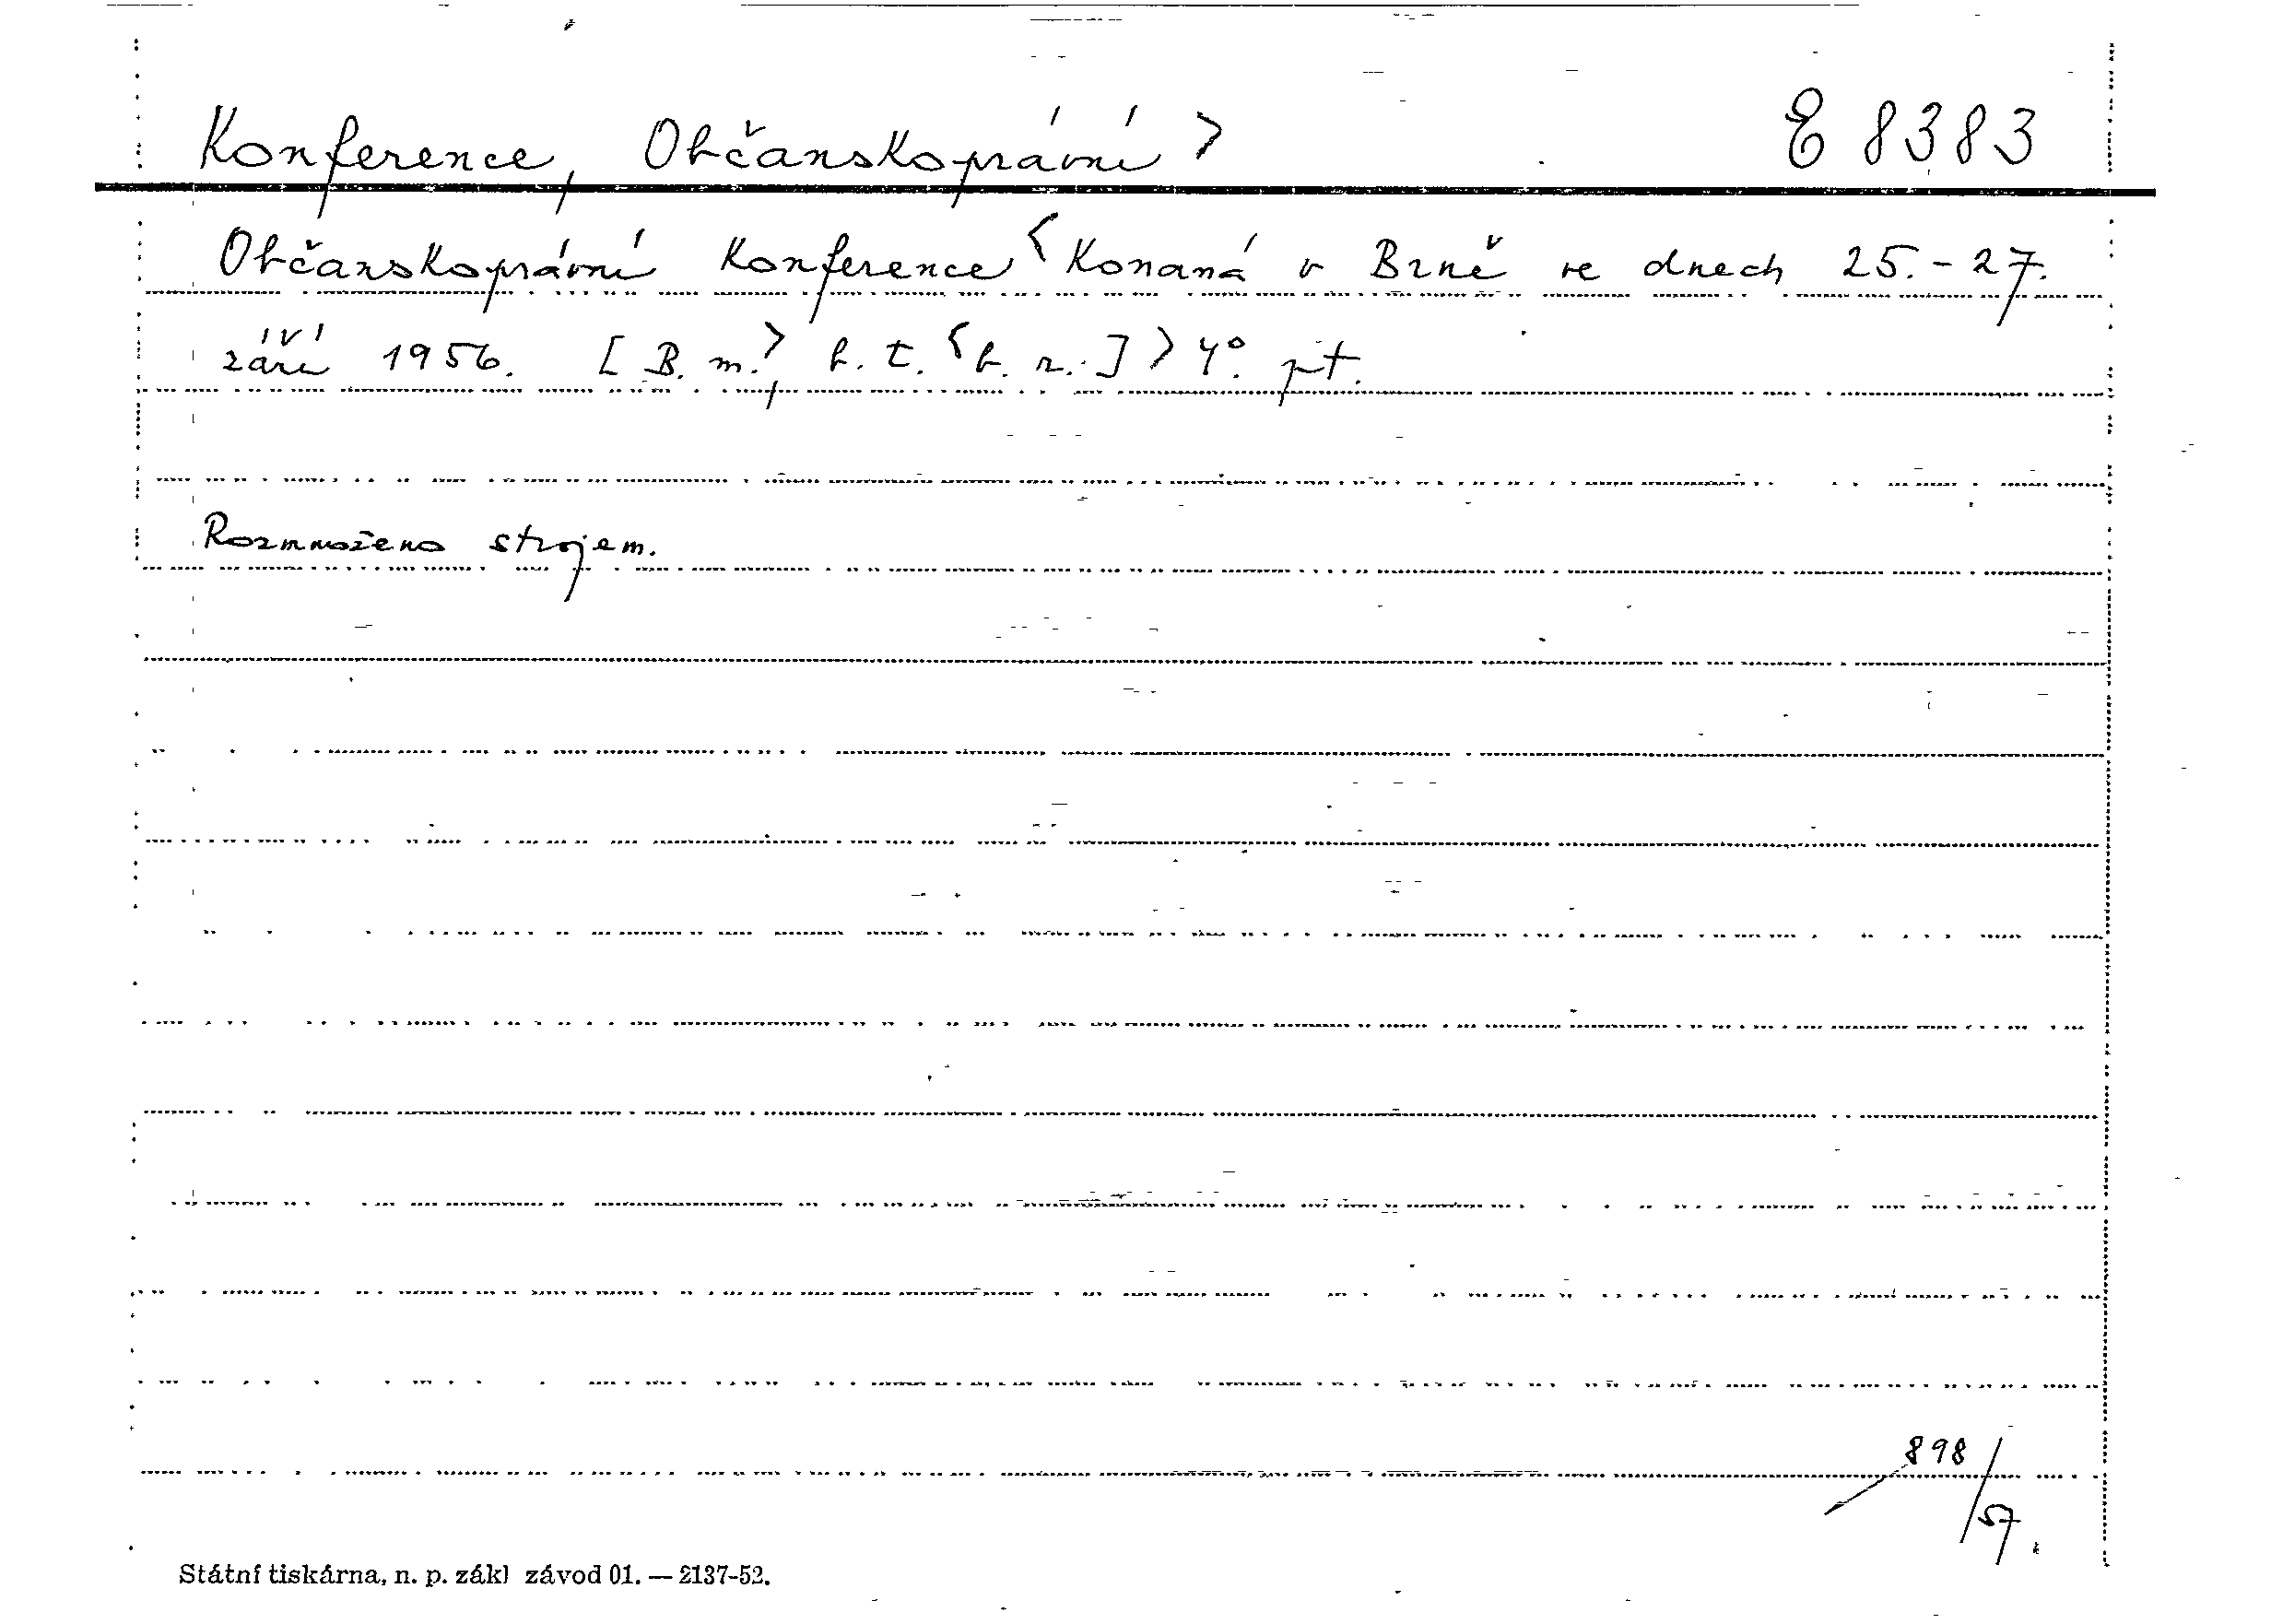 Konference, Občanskoprávní > E 8383
Občanskoprávní konference < konaná v Brně ve dnech 25.-27.
září 1956. [B. m.>, b. t. < b. r.] > 4°. pt.
Rozmnoženo strojem.
898/57.
Státní tiskárna, n. p. zákl závod 01. — 2137-52.